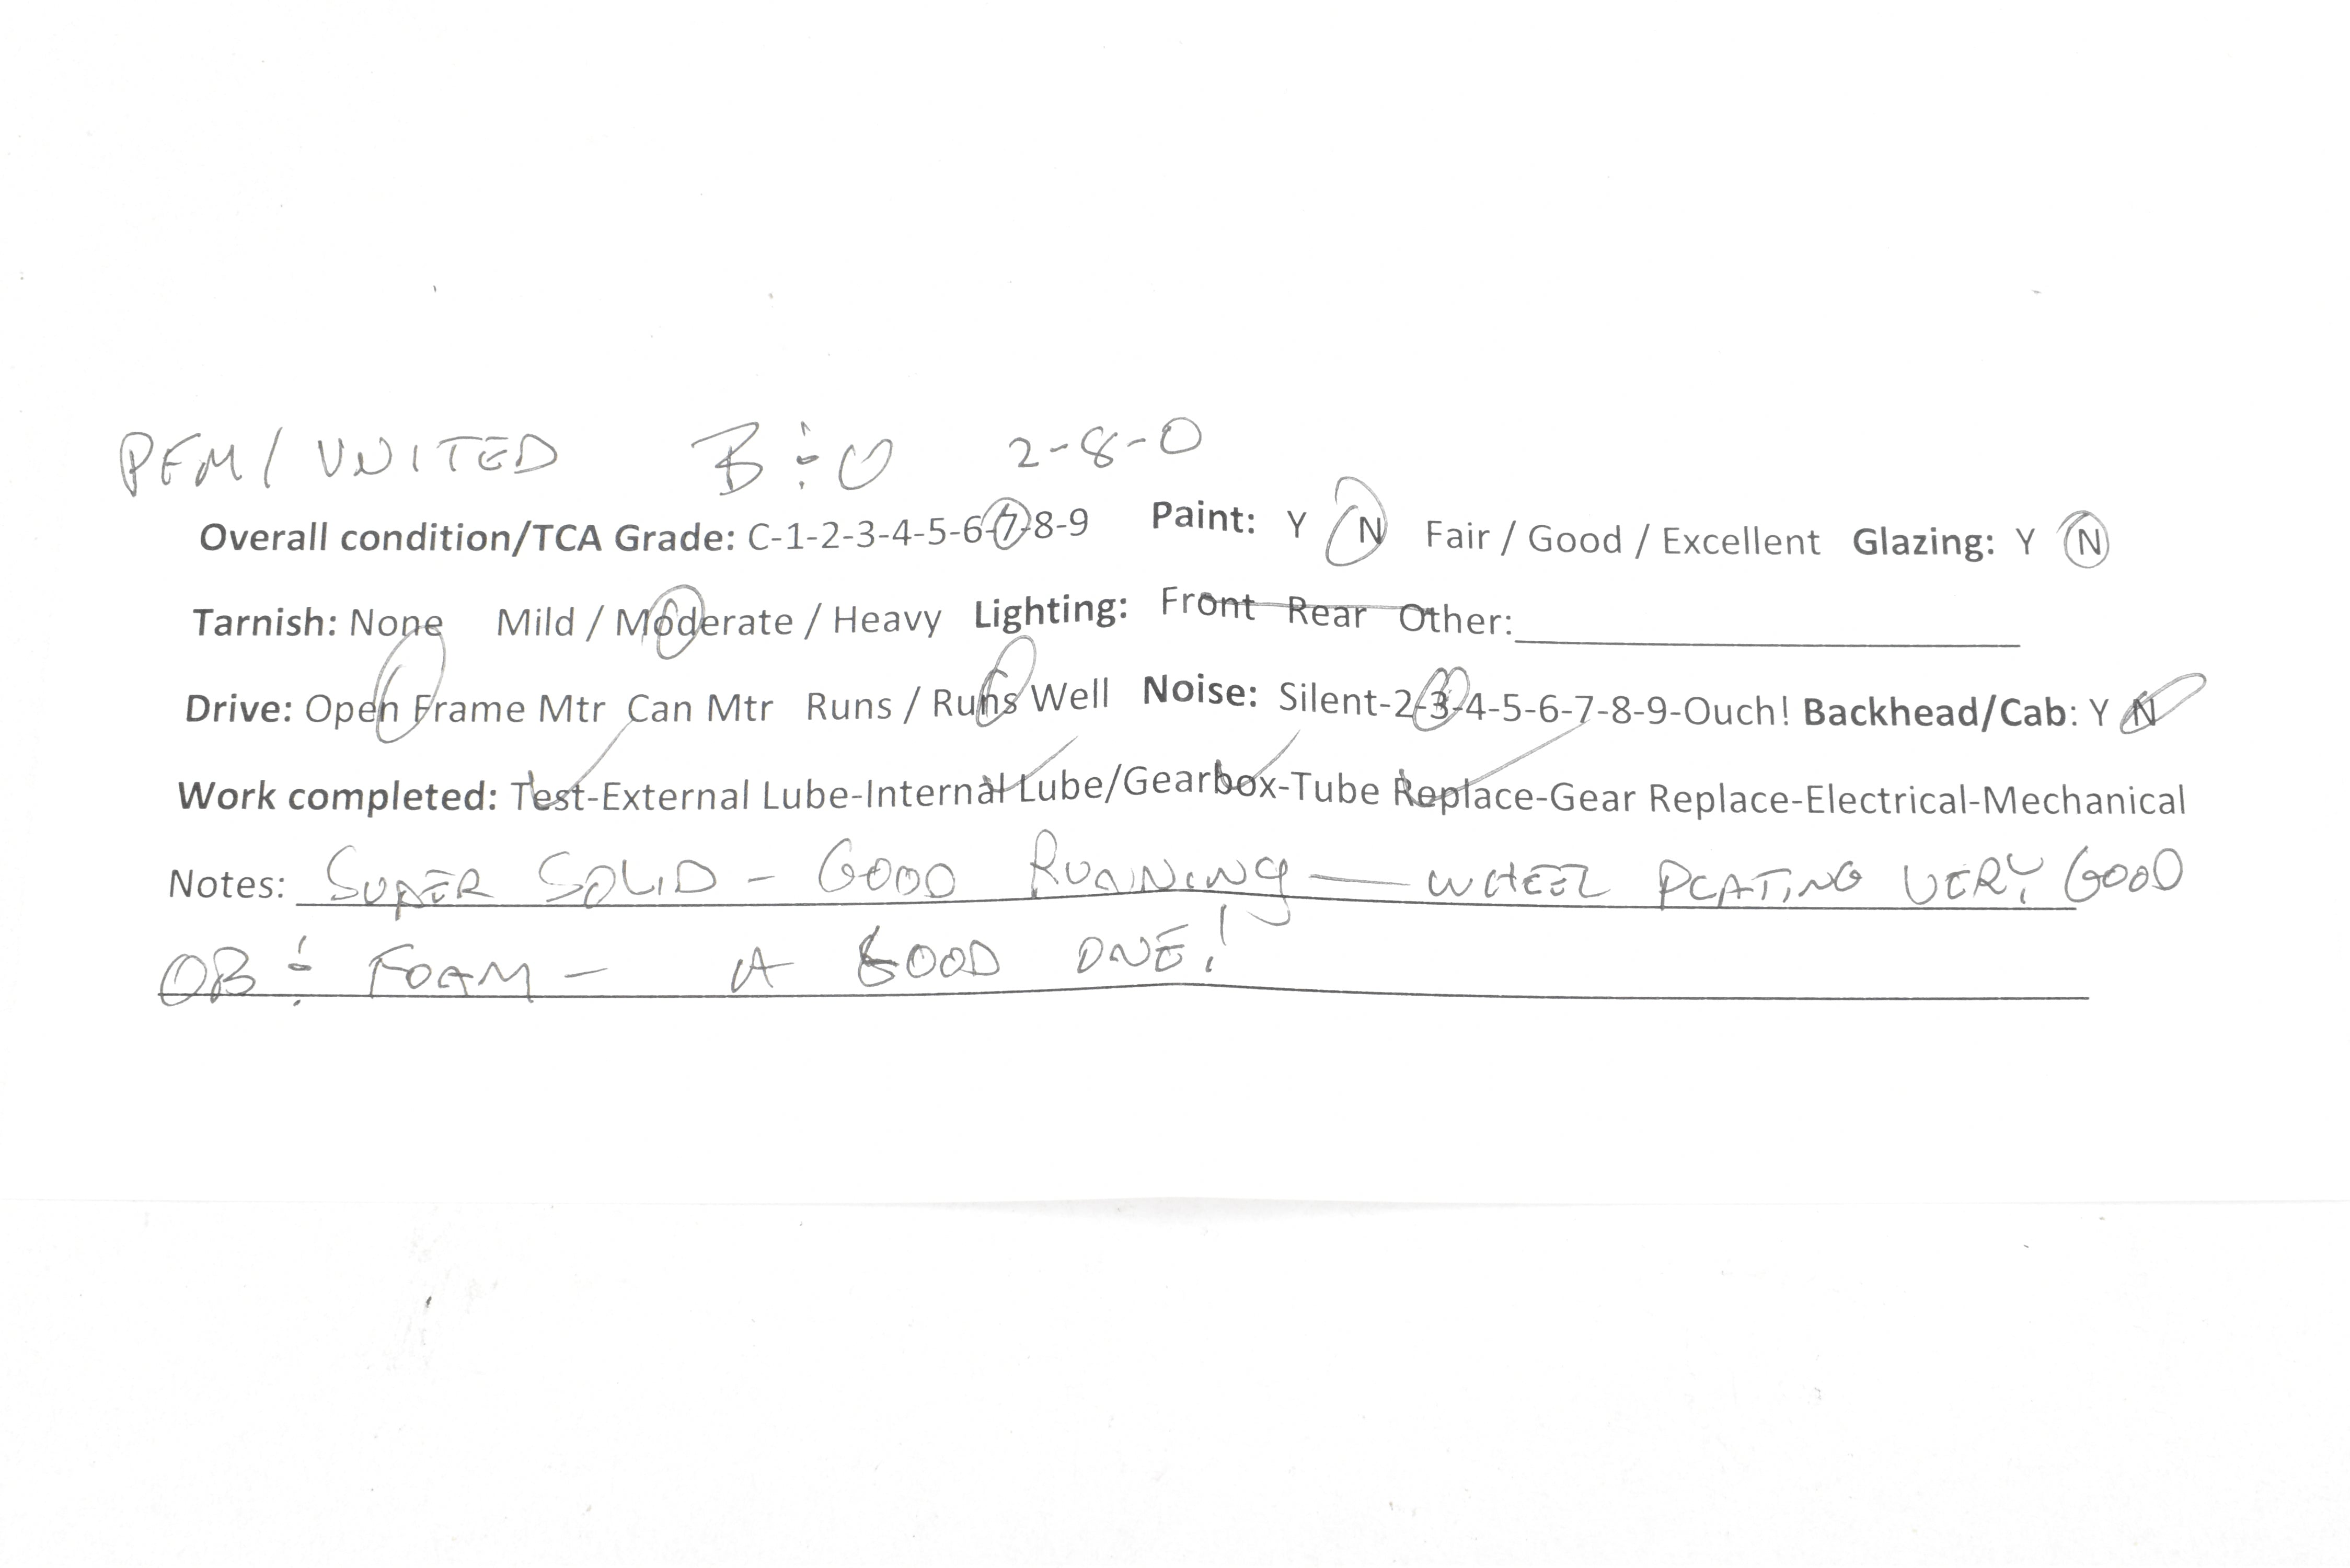 PFM / UNITED B & O 2-8-0
Overall condition/TCA Grade: C-1-2-3-4-5-6-7-8-9 Paint: Y N Fair / Good / Excellent Glazing: Y N
Tarnish: None Mild / Moderate / Heavy Lighting: Front Rear Other:
Drive: Open Frame Mtr Can Mtr Runs / Runs Well Noise: Silent-2-3-4-5-6-7-8-9-Ouch! Backhead/Cab: Y N
Work completed: Test-External Lube-Internal Lube/Gearbox-Tube Replace-Gear Replace-Electrical-Mechanical
Notes: SUPER SOLID - GOOD RUNNING — WHEEL PLATING VERY GOOD
OB & FOAM - A GOOD ONE!